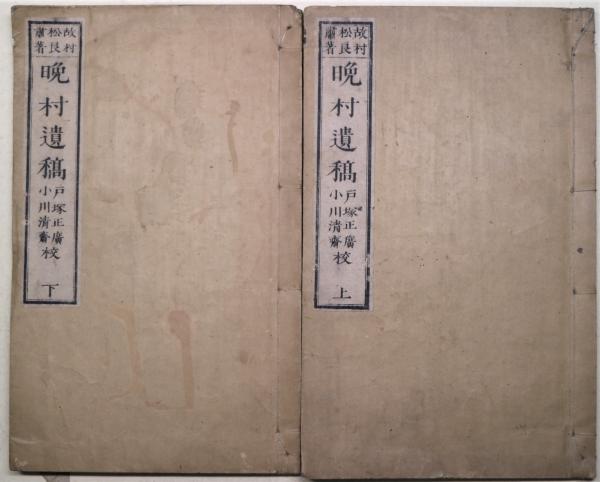 故村
松良
肅著
晩村遺稿
戸塚正廣
小川清齋
校
上
故村
松良
肅著
晩村遺稿
戸塚正廣
小川清齋
校
下